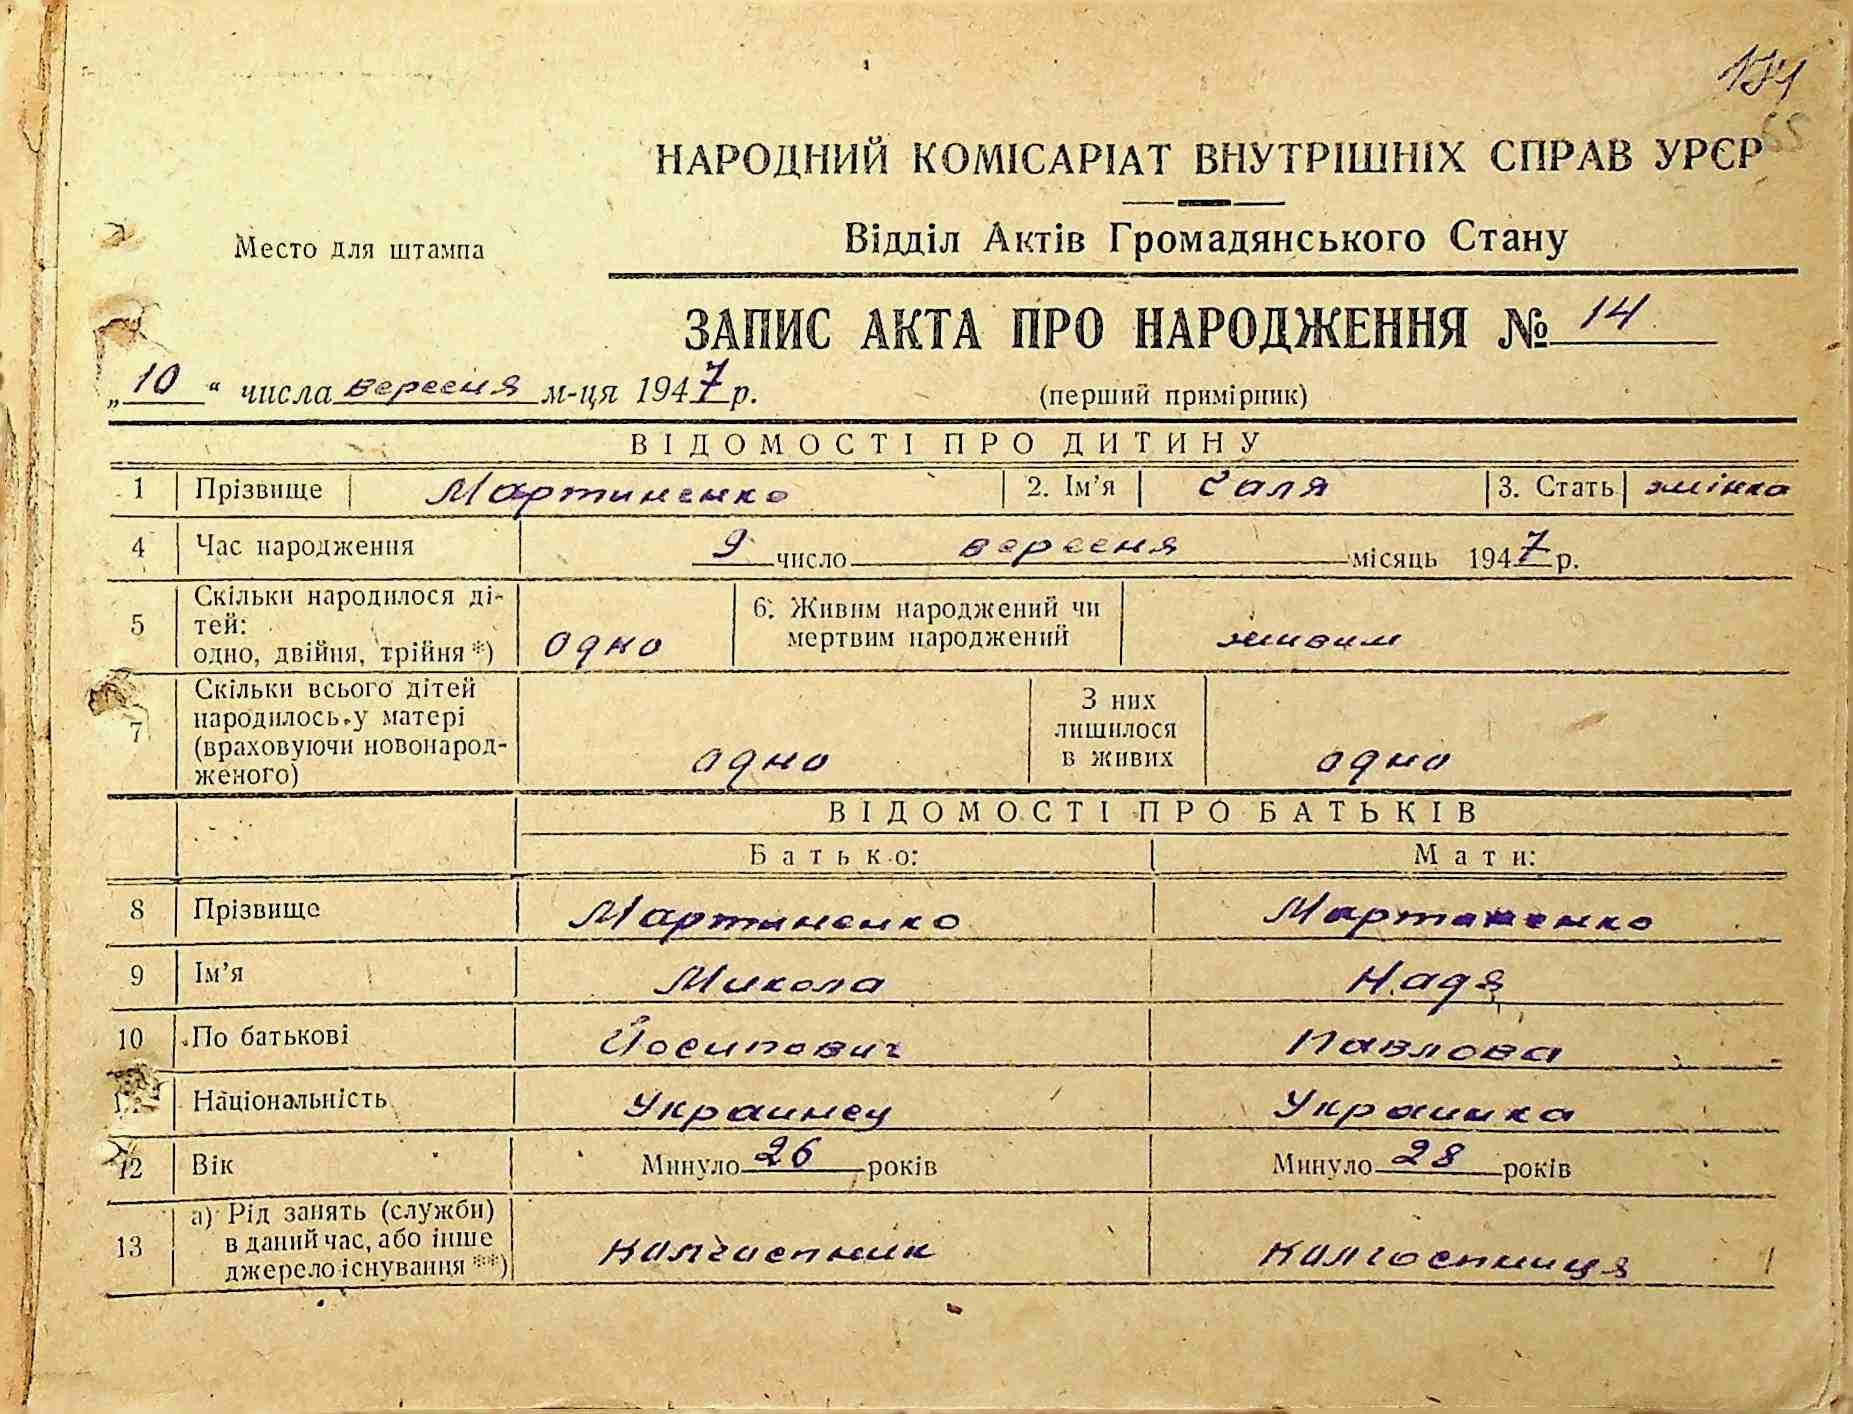 134
55
НАРОДНИЙ КОМІСАРІАТ ВНУТРІШНІХ СПРАВ УРЄР
Место для штампа
Відділ Актів Громадянського Стану
ЗАПИС АКТА ПРО НАРОДЖЕННЯ № 14
„10“ числа вересня м-ця 1947 р. (перший примірник)
ВІДОМОСТІ ПРО ДИТИНУ
1 Прізвище Мартиненко 2. Ім’я Галя 3. Стать жінка
4 Час народження 9 число вересня місяць 1947 р.
5 Скільки народилося ді-
тей:
одно, двійня, трійня *) одно 6. Живим народжений чи
мертвим народжений живим
7 Скільки всього дітей
народилось у матері
(враховуючи новонарод-
женого) одно З них
лишилося
в живих одно
ВІДОМОСТІ ПРО БАТЬКІВ
Батько: Мати:
8 Прізвище Мартиненко Мартиненко
9 Ім’я Микола Надя
10 По батькові Йосипович Павлова
Національність Украинец Украинка
12 Вік Минуло 26 років Минуло 28 років
13 а) Рід занять (служби)
в даний час, або інше
джерело існування **) колгоспник колгоспниця